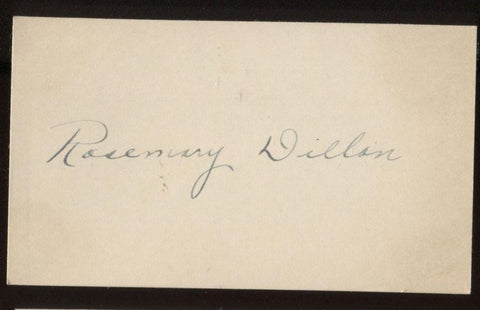 Rosemary Dillon